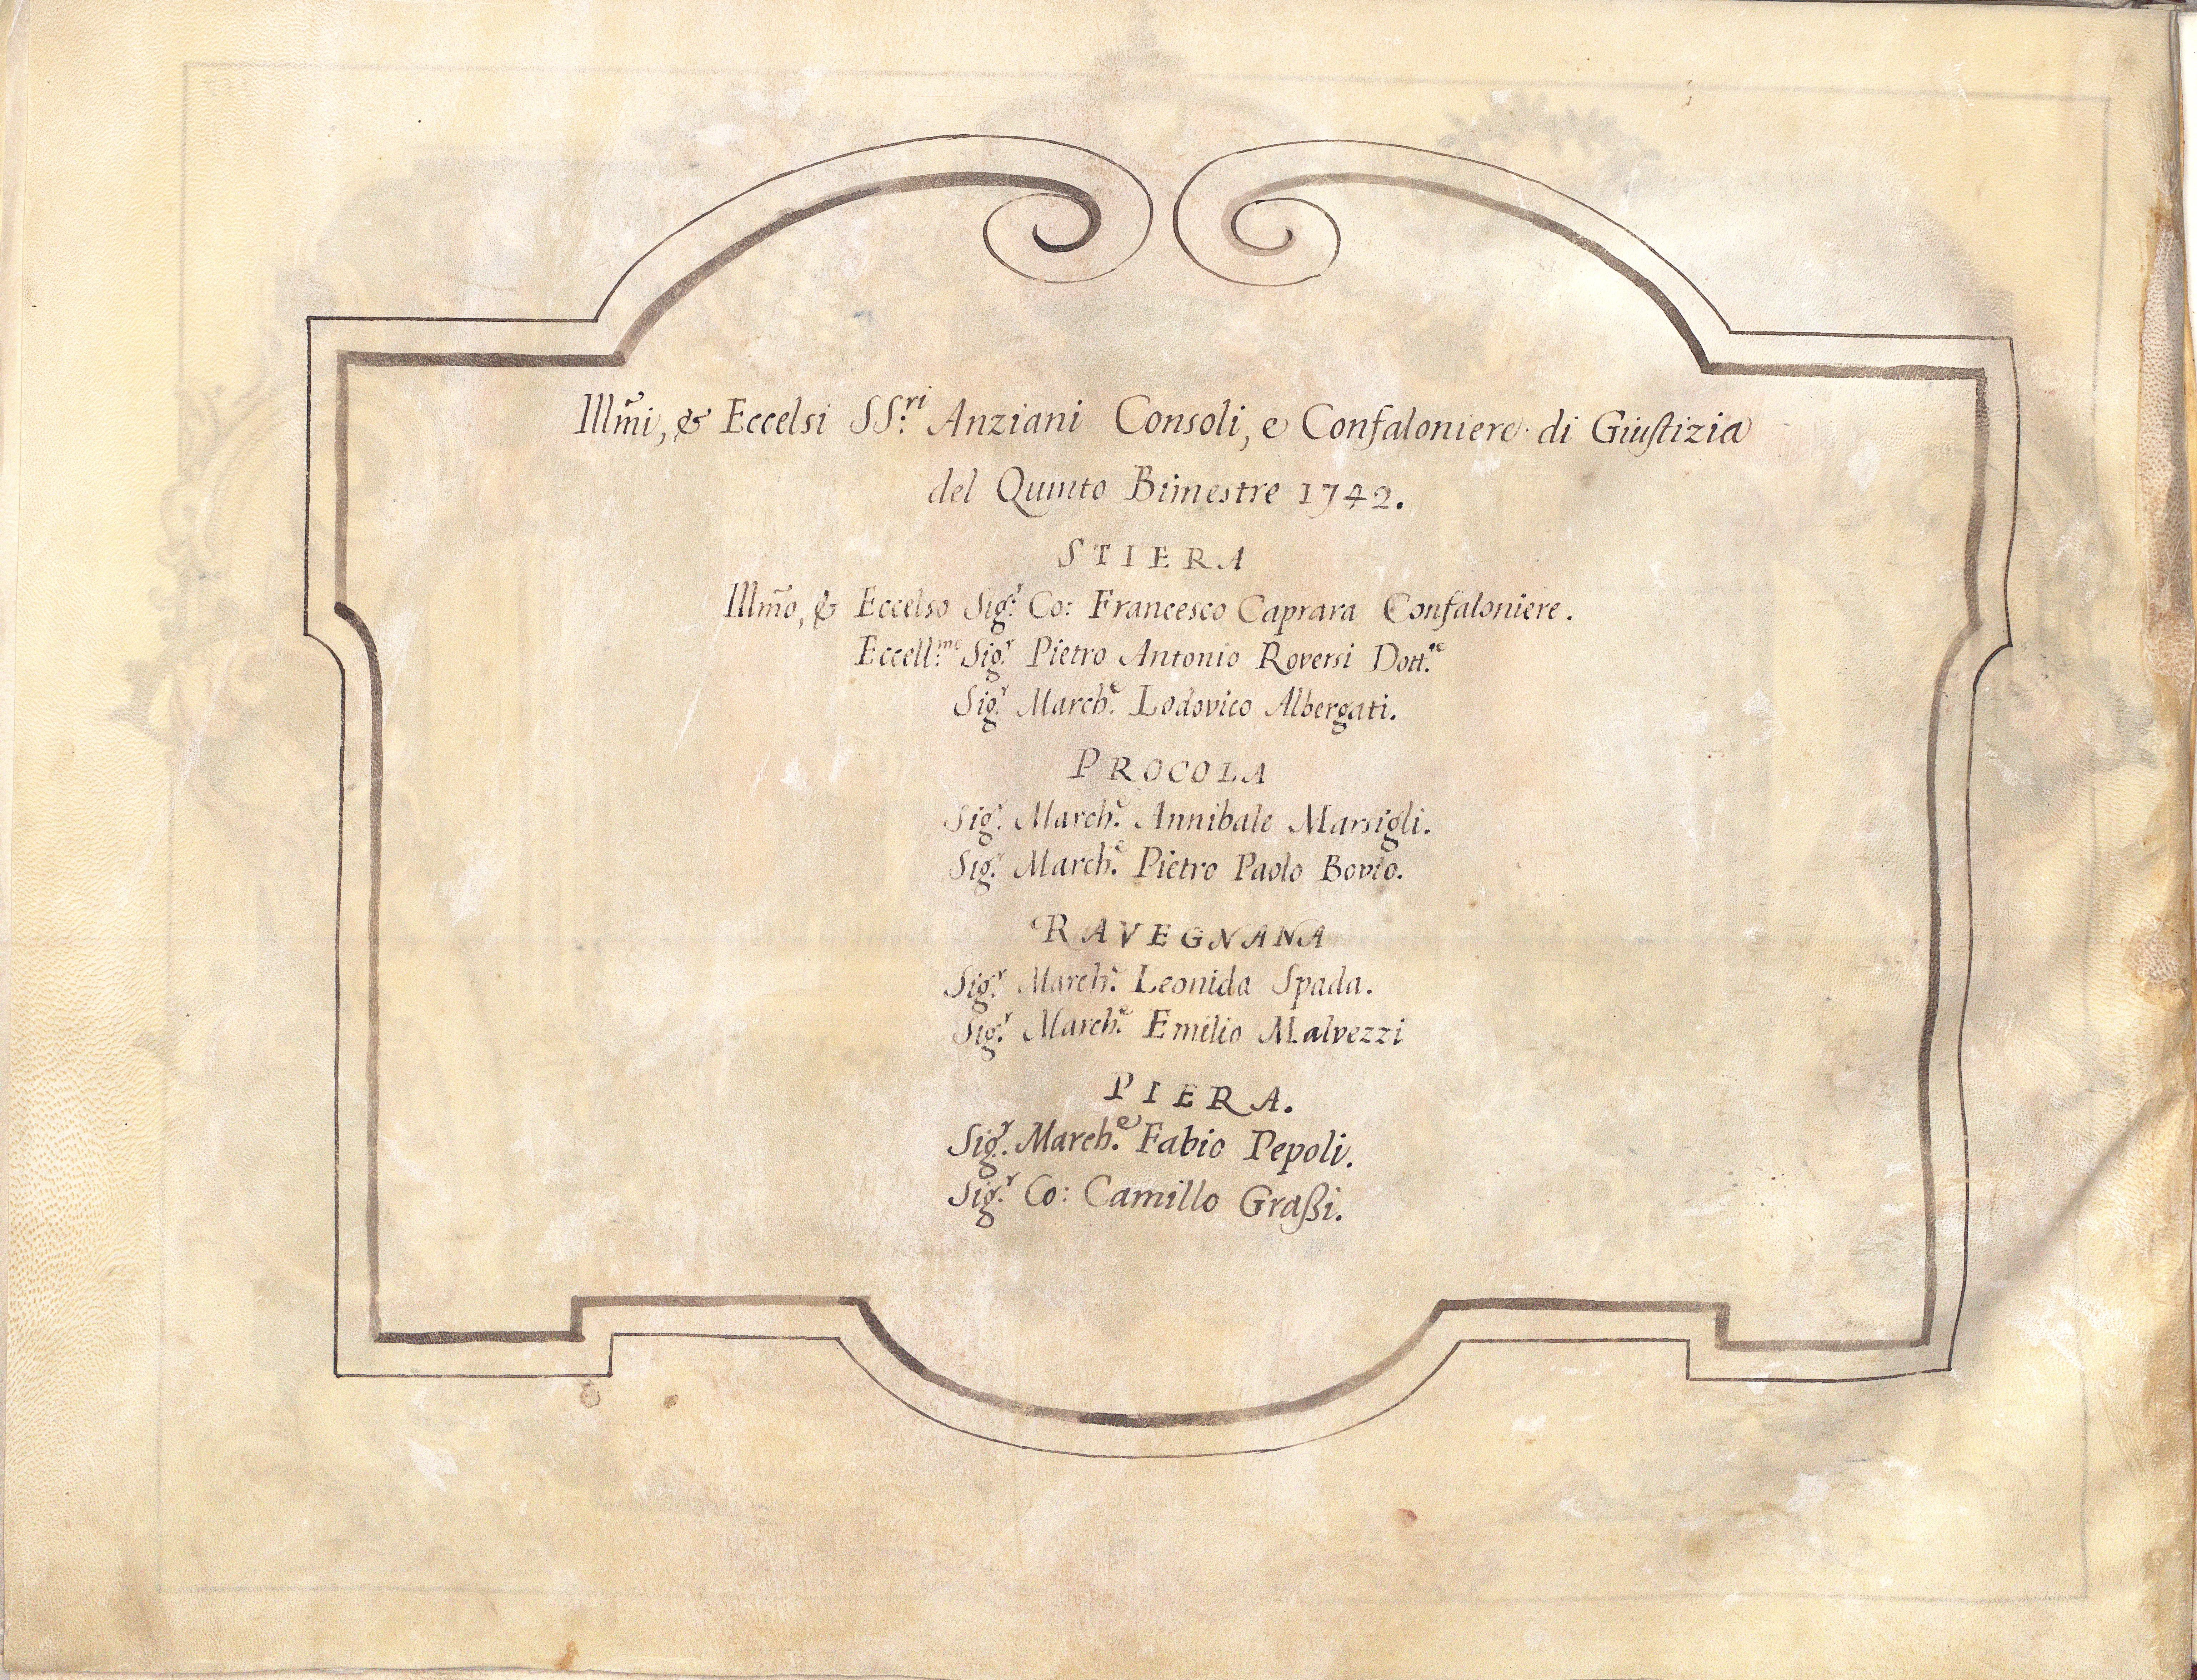 Illm̃i, & Eccelsi SS.ri Anziani Consoli, e Confaloniere di Giustizia
del Quinto Bimestre 1742.
STIERA
Illm̃o, & Eccelso Sig.r Co: Francesco Caprara Confaloniere.
Eccell.mo Sig.r Pietro Antonio Roversi Dott.re
Sig.r March.e Lodovico Albergati.
PROCOLA
Sig.r March.e Annibale Marsigli.
Sig.r March.e Pietro Paolo Bovio.
RAVEGNANA
Sig.r March.e Leonida Spada.
Sig.r March.e Emilio Malvezzi
PIERA.
Sig.r March.e Fabio Pepoli.
Sig.r Co: Camillo Graßi.